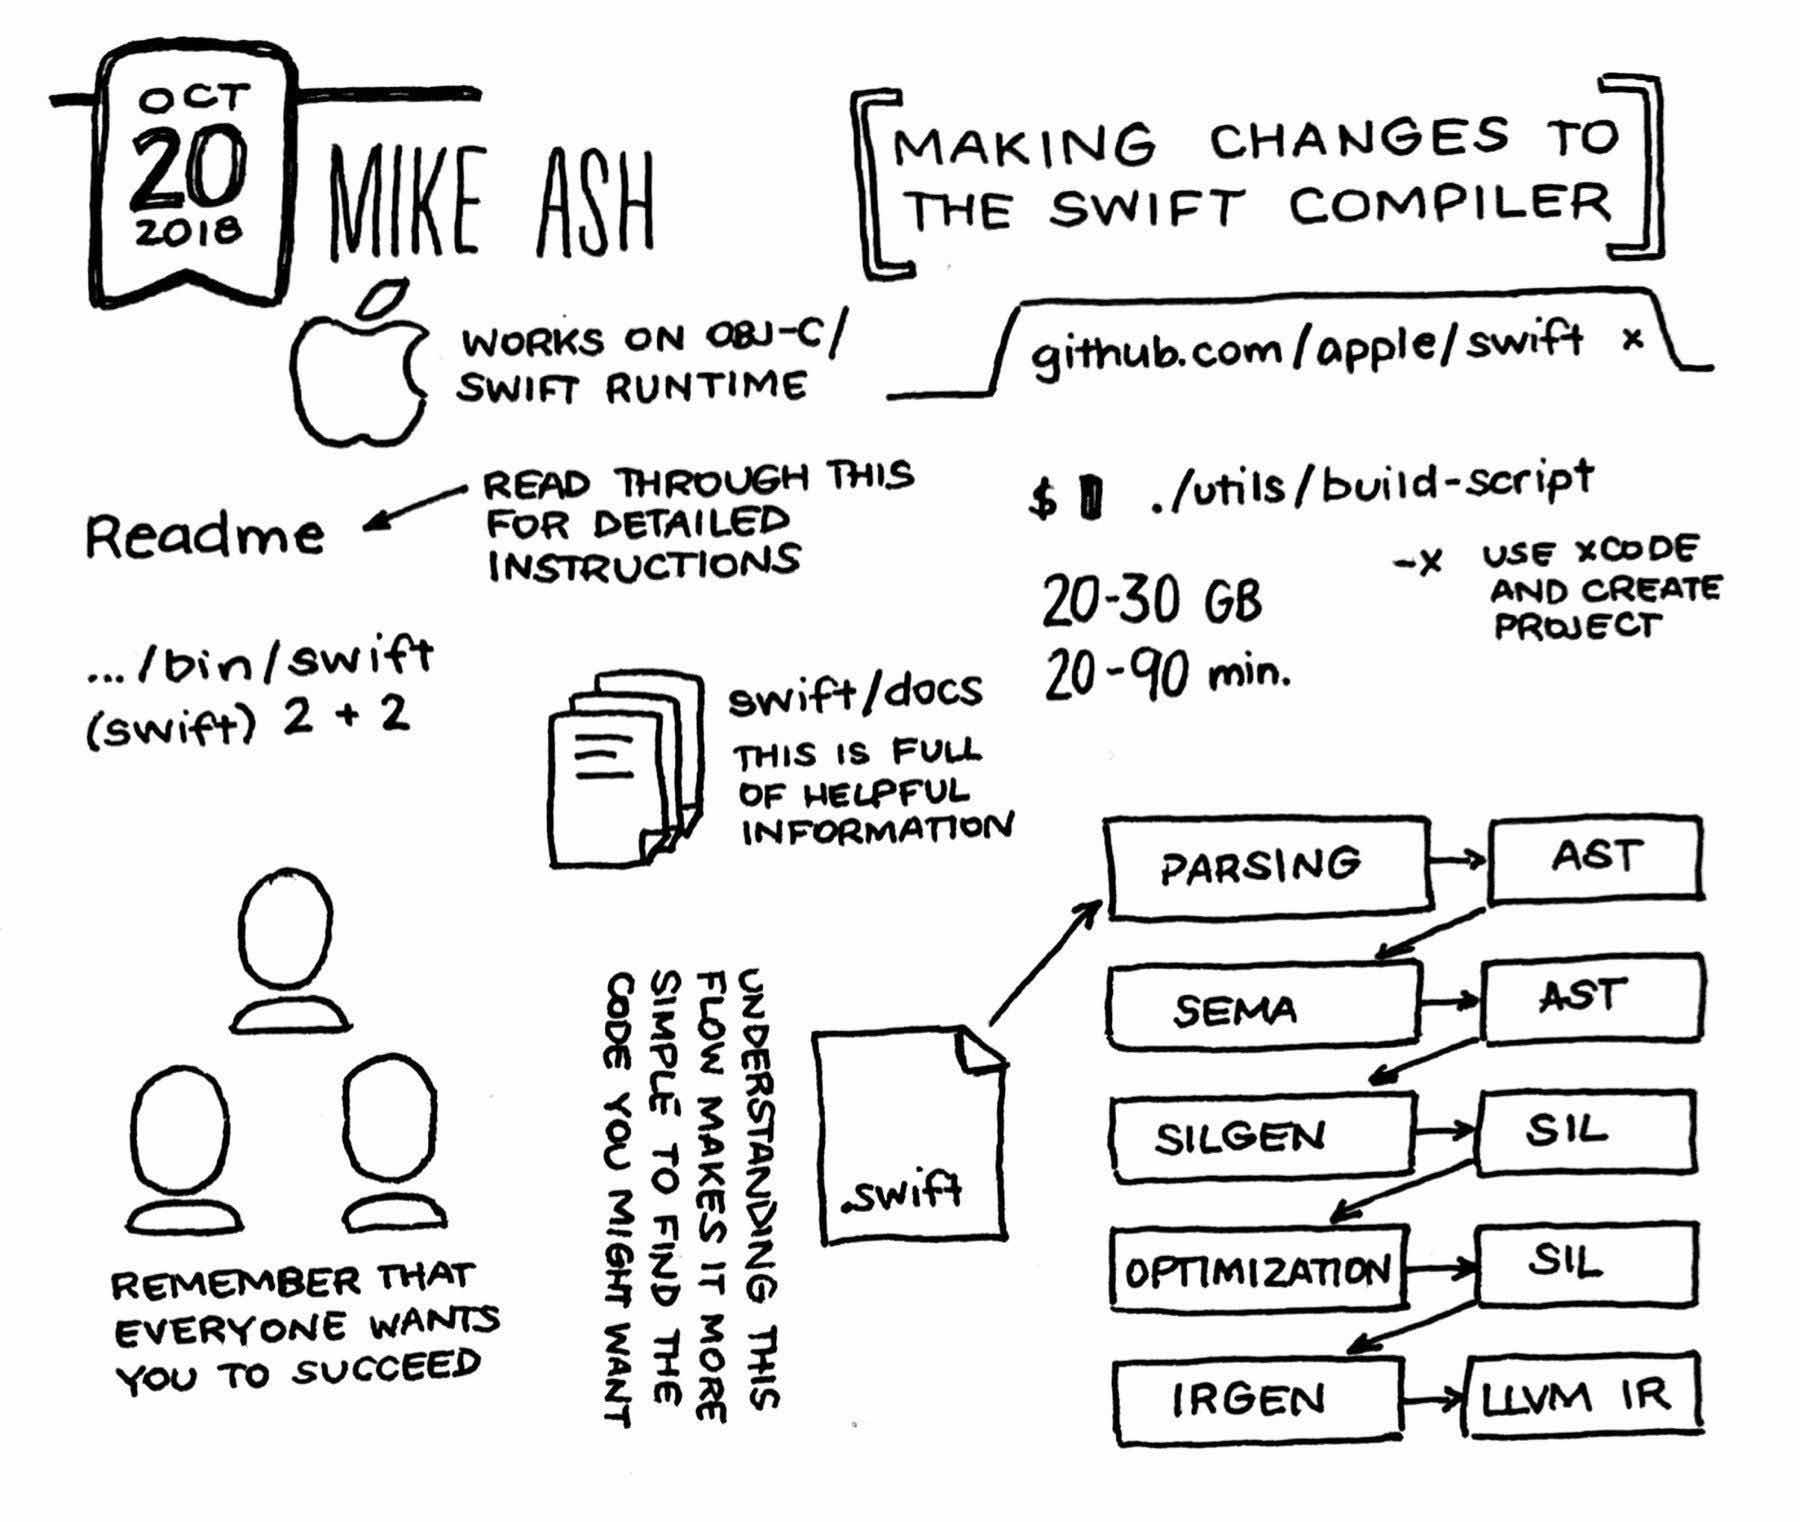 OCT
20
2018
MIKE ASH
MAKING CHANGES TO
THE SWIFT COMPILER
WORKS ON OBJ-C/
SWIFT RUNTIME
github.com/apple/swift x
Readme
READ THROUGH THIS
FOR DETAILED
INSTRUCTIONS
$ ./utils/build-script
-x USE XCODE
AND CREATE
PROJECT
20-30 GB
20-90 min.
.../bin/swift
(swift) 2 + 2
swift/docs
THIS IS FULL
OF HELPFUL
INFORMATION
REMEMBER THAT
EVERYONE WANTS
YOU TO SUCCEED
UNDERSTANDING THIS
FLOW MAKES IT MORE
SIMPLE TO FIND THE
CODE YOU MIGHT WANT
.swift
PARSING
AST
SEMA
AST
SILGEN
SIL
OPTIMIZATION
SIL
IRGEN
LLVM IR